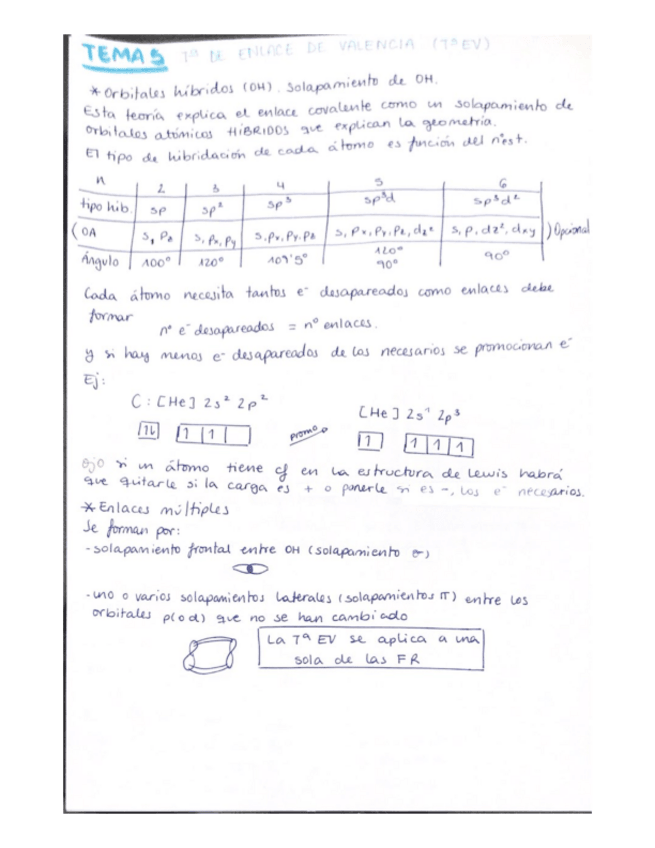 TEMA 5 Tª DE ENLACE DE VALENCIA (TªEV)
* Orbitales híbridos (OH). Solapamiento de OH.
Esta teoría explica el enlace covalente como un solapamiento de
orbitales atómicos HÍBRIDOS que explican la geometría.
El tipo de hibridación de cada átomo es función del nºest.
n 2 3 4 5 6
tipo hib. sp sp² sp³ sp³d sp³d²
(OA s, pz s, px, py s, px, py, pz s, px, py, pz, dz² s, p, dz², dxy ) Opcional
Ángulo 100º 120º 109'5º 120º 90º 90º
Cada átomo necesita tantos e⁻ desapareados como enlaces debe
formar
nº e⁻ desapareados = nº enlaces.
y si hay menos e⁻ desapareados de los necesarios se promocionan e⁻
Ej:
C: [He] 2s² 2p²
[He] 2s¹ 2p³
promo
ojo si un átomo tiene cf en la estructura de Lewis habrá
que quitarle si la carga es + o ponerle si es -, los e⁻ necesarios.
* Enlaces múltiples
Se forman por:
- solapamiento frontal entre OH (solapamiento σ)
- uno o varios solapamientos laterales (solapamientos π) entre los
orbitales p(o d) que no se han cambiado
La Tª EV se aplica a una
sola de las FR